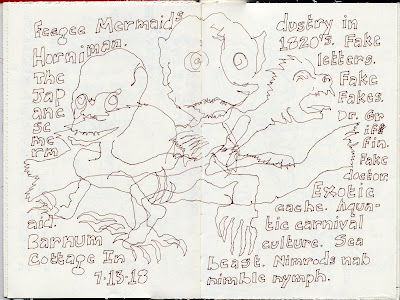 Feegee Mermaids
Horniman.
The
Jap
ane
se
me
rm
aid.
Barnum
Cottage In
7.13.18
dustry in
1820's. Fake
letters.
Fake
Fakes.
Dr. Gr
iff
fin.
Fake
doctor
Exotic
cache. Aqua-
tic carnival
culture. Sea
beast. Nimrods nab
nimble nymph.